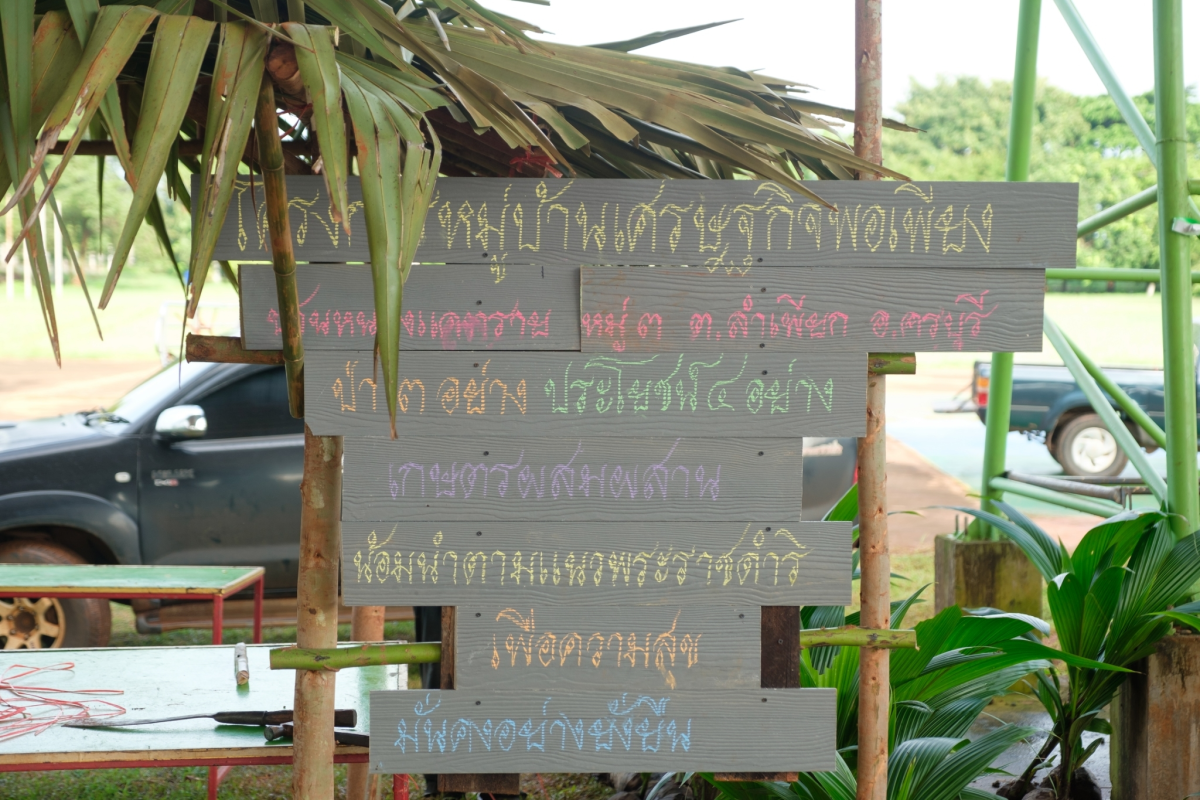 หมู่บ้านเศรษฐกิจพอเพียง
หมู่ ๓ ต.ลำเพียก อ.ครบุรี
ป่า ๓ อย่าง ประโยชน์ ๔ อย่าง
เกษตรผสมผสาน
น้อมนำตามแนวพระราชดำริ
เพื่อความสุข
มั่นคงอย่างยั่งยืน